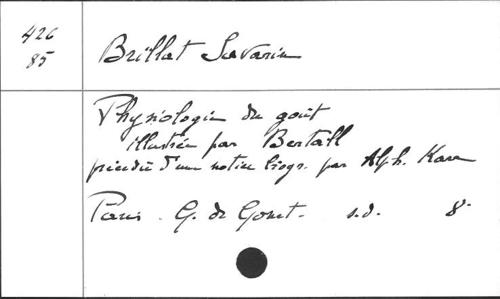 426
85
Brillat Savarin
Physiologie du goût
illustrée par Bertall
précédée d'une notice biogr. par Alph. Karr
Paris. G. de Gonet. s.d. 8°